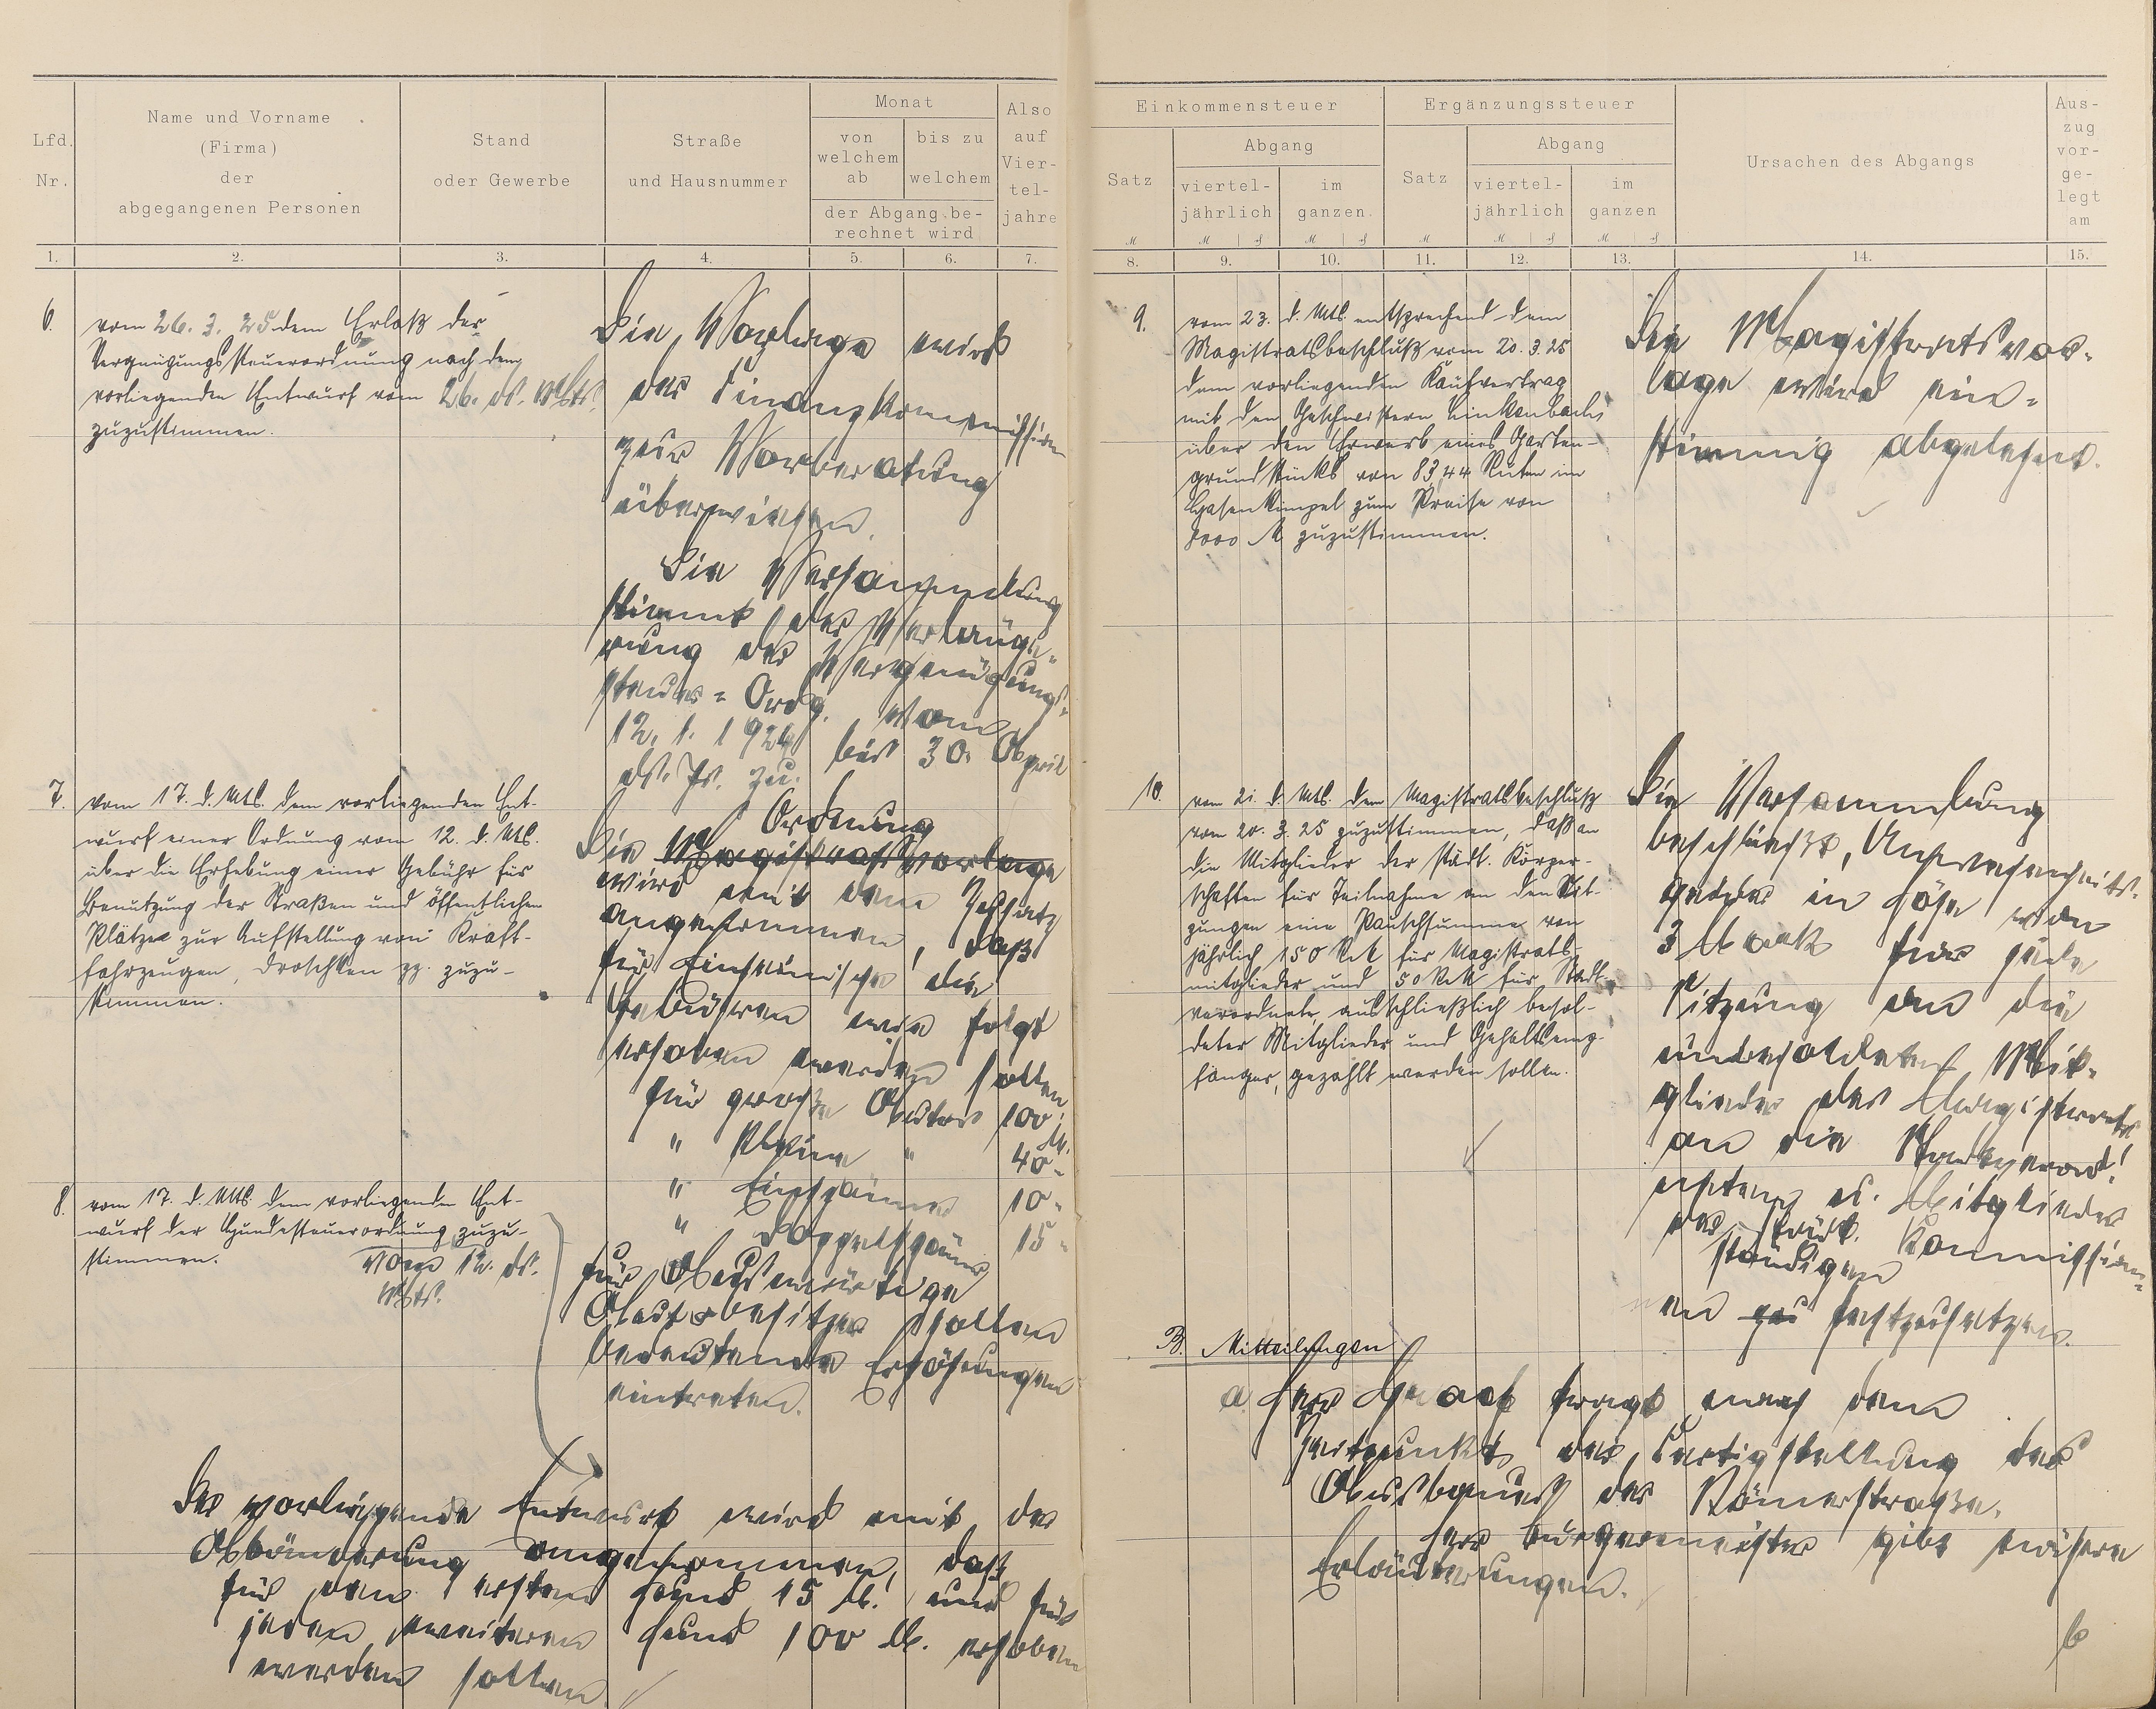 Lfd. Nr.
Name und Vorname
(Firma)
der
abgegangenen Personen
Stand
oder Gewerbe
Straße
und Hausnummer
Monat
von welchem ab
bis zu welchem
der Abgang be-
rechnet wird
Also auf Vier-
tel-
jahre
1. 2. 3. 4. 5. 6. 7.
6. vom 26. 3. 25 dem Erlaß der
Vergnügungssteuerordnung nach dem
vorliegenden Entwurf vom 26. ds. Mts.
zuzustimmen.
Die Vorlage wird
der Finanzkommission
zur Vorberatung
überwiesen.
Die Versammlung
stimmt der Verlänge-
rung der Vergnügungs-
steuer-Ordg. vom
12. 1. 1924 bis 30. April
ds. Js. zu.
7. vom 17. d. Mts. dem vorliegenden Ent-
wurf einer Ordnung vom 12. d. Mts.
über die Erhebung einer Gebühr für
Benutzung der Straßen und öffentlichen
Plätze zur Aufstellung von Kraft-
fahrzeugen, Droschken pp. zuzu-
stimmen.
Ordnung
Die Magistratsvorlage
wird mit dem Zusatz
angenommen, daß
für Einheimische die
Gebühren wie folgt
erhoben werden sollen
für große Autos 100 M.
" kleine " 40 "
" Einspänner 10 "
" Doppelspänner 15 "
für Auswärtige
Autobesitzer sollen
bedeutende Erhöhungen
eintreten.
8. vom 17. d. Mts. dem vorliegenden Ent-
wurf der Hundesteuerordnung zuzu-
stimmen.
vom 12. ds.
Mts.
Der vorliegende Entwurf wird mit der
Abänderung angenommen, daß
für den ersten Hund 15 M. und für
jeden weiteren Hund 100 M. erhoben
werden sollen.
Einkommensteuer
Satz
Abgang
viertel-
jährlich
im
ganzen
Ergänzungssteuer
Satz
Abgang
viertel-
jährlich
im
ganzen
Ursachen des Abgangs
Aus-
zug
vor-
ge-
legt
am
8. 9. 10. 11. 12. 13. 14. 15.
9. vom 23. d. Mts. entsprechend dem
Magistratsbeschluß vom 20. 3. 25
dem vorliegenden Kaufvertrag
mit den Geschwistern Linkenbach
über den Erwerb eines Garten-
grundstücks von 83,44 Ruten im
zum Preise von
8000 M zuzustimmen.
Die Magistratsvor-
lage wird ein-
stimmig abgelehnt.
10. vom 21. d. Mts. dem Magistratsbeschluß
vom 20. 3. 25 zuzustimmen, daß an
die Mitglieder der städt. Körper-
schaften für Teilnahme an den Sit-
zungen eine Pauschsumme von
jährlich 150 RM für Magistrats-
mitglieder und 50 RM für Stadt-
verordnete, ausschließlich besol-
deter Mitglieder und Gehaltsemp-
fänger, gezahlt werden sollen.
Die Versammlung
beschließt, Anwesenheits-
gelder in Höhe von
3 Mark für jede
Sitzung an die
unbesoldeten Mit-
glieder des Magistrats
an die Stadtverord-
neten u. Mitglieder
der städt.
ständigen Kommission-
en zu festzusetzen.
B. Mitteilungen
a Herr Graef fragt nach dem
Zeitpunkt der Fertigstellung des
Ausbaues der Römerstraße.
Herr Bürgermeister gibt nähere
Erläuterungen.
b